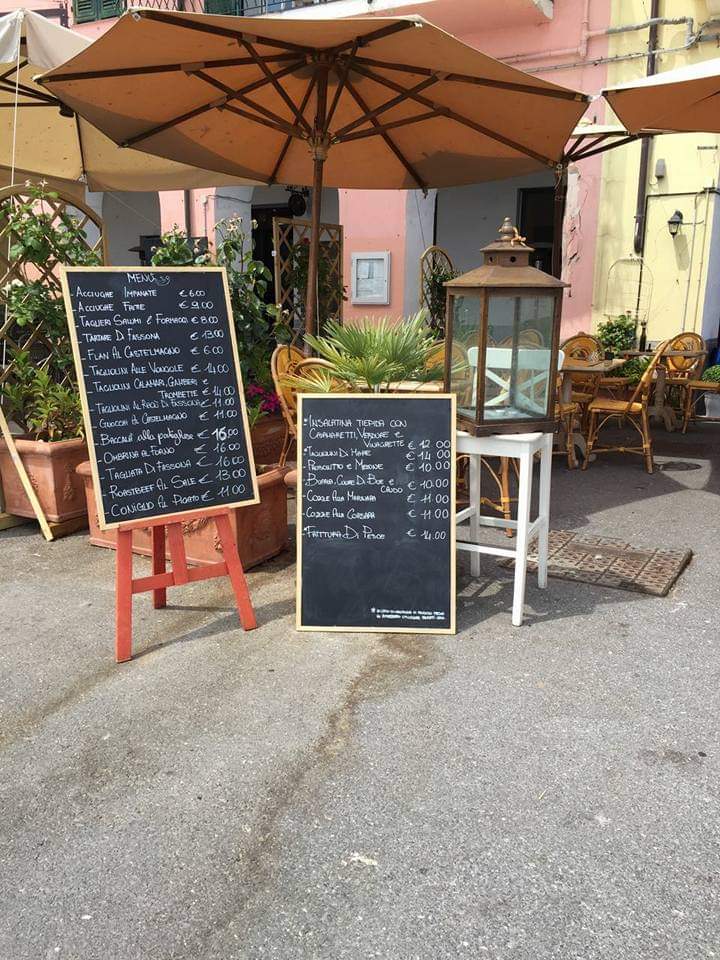 MENU
- ACCIUGHE IMPANATE € 6.00
- ACCIUGHE FRITTE € 9,00
- TAGLIERI SALUMI E FORMAGGI € 8.00
- TARTARE DI FASSONA € 13.00
- FLAN AL CASTELMAGNO € 6.00
- TAGLIOLINI ALLE VONGOLE € 14.00
- TAGLIOLINI CALAMARI, GAMBERI E
TROMBETTE € 14.00
- TAGLIOLINI AL RAGÙ DI FASSONA € 11.00
- GNOCCHI AL CASTELMAGNO € 11.00
- BACCALÀ alla portoghese € 16.00
- OMBRINA AL FORNO € 16.00
- TAGLIATA DI FASSONA € 16.00
- ROASTBEEF AL SALE € 13.00
- CONIGLIO AL PIATTO € 11.00
* INSALATINA TIEPIDA CON
GAMBERETTI, VERDURE E
VINAIGRETTE € 12.00
* TAGLIOLINI DI MARE € 14.00
- PROSCIUTTO E MELONE € 10.00
- BURRATA, CUORE DI BUE E
CRUDO € 10.00
- COZZE ALLA MARINARA € 11.00
- COZZE ALLA CORSARA € 11.00
* FRITTURA DI PESCE € 14.00